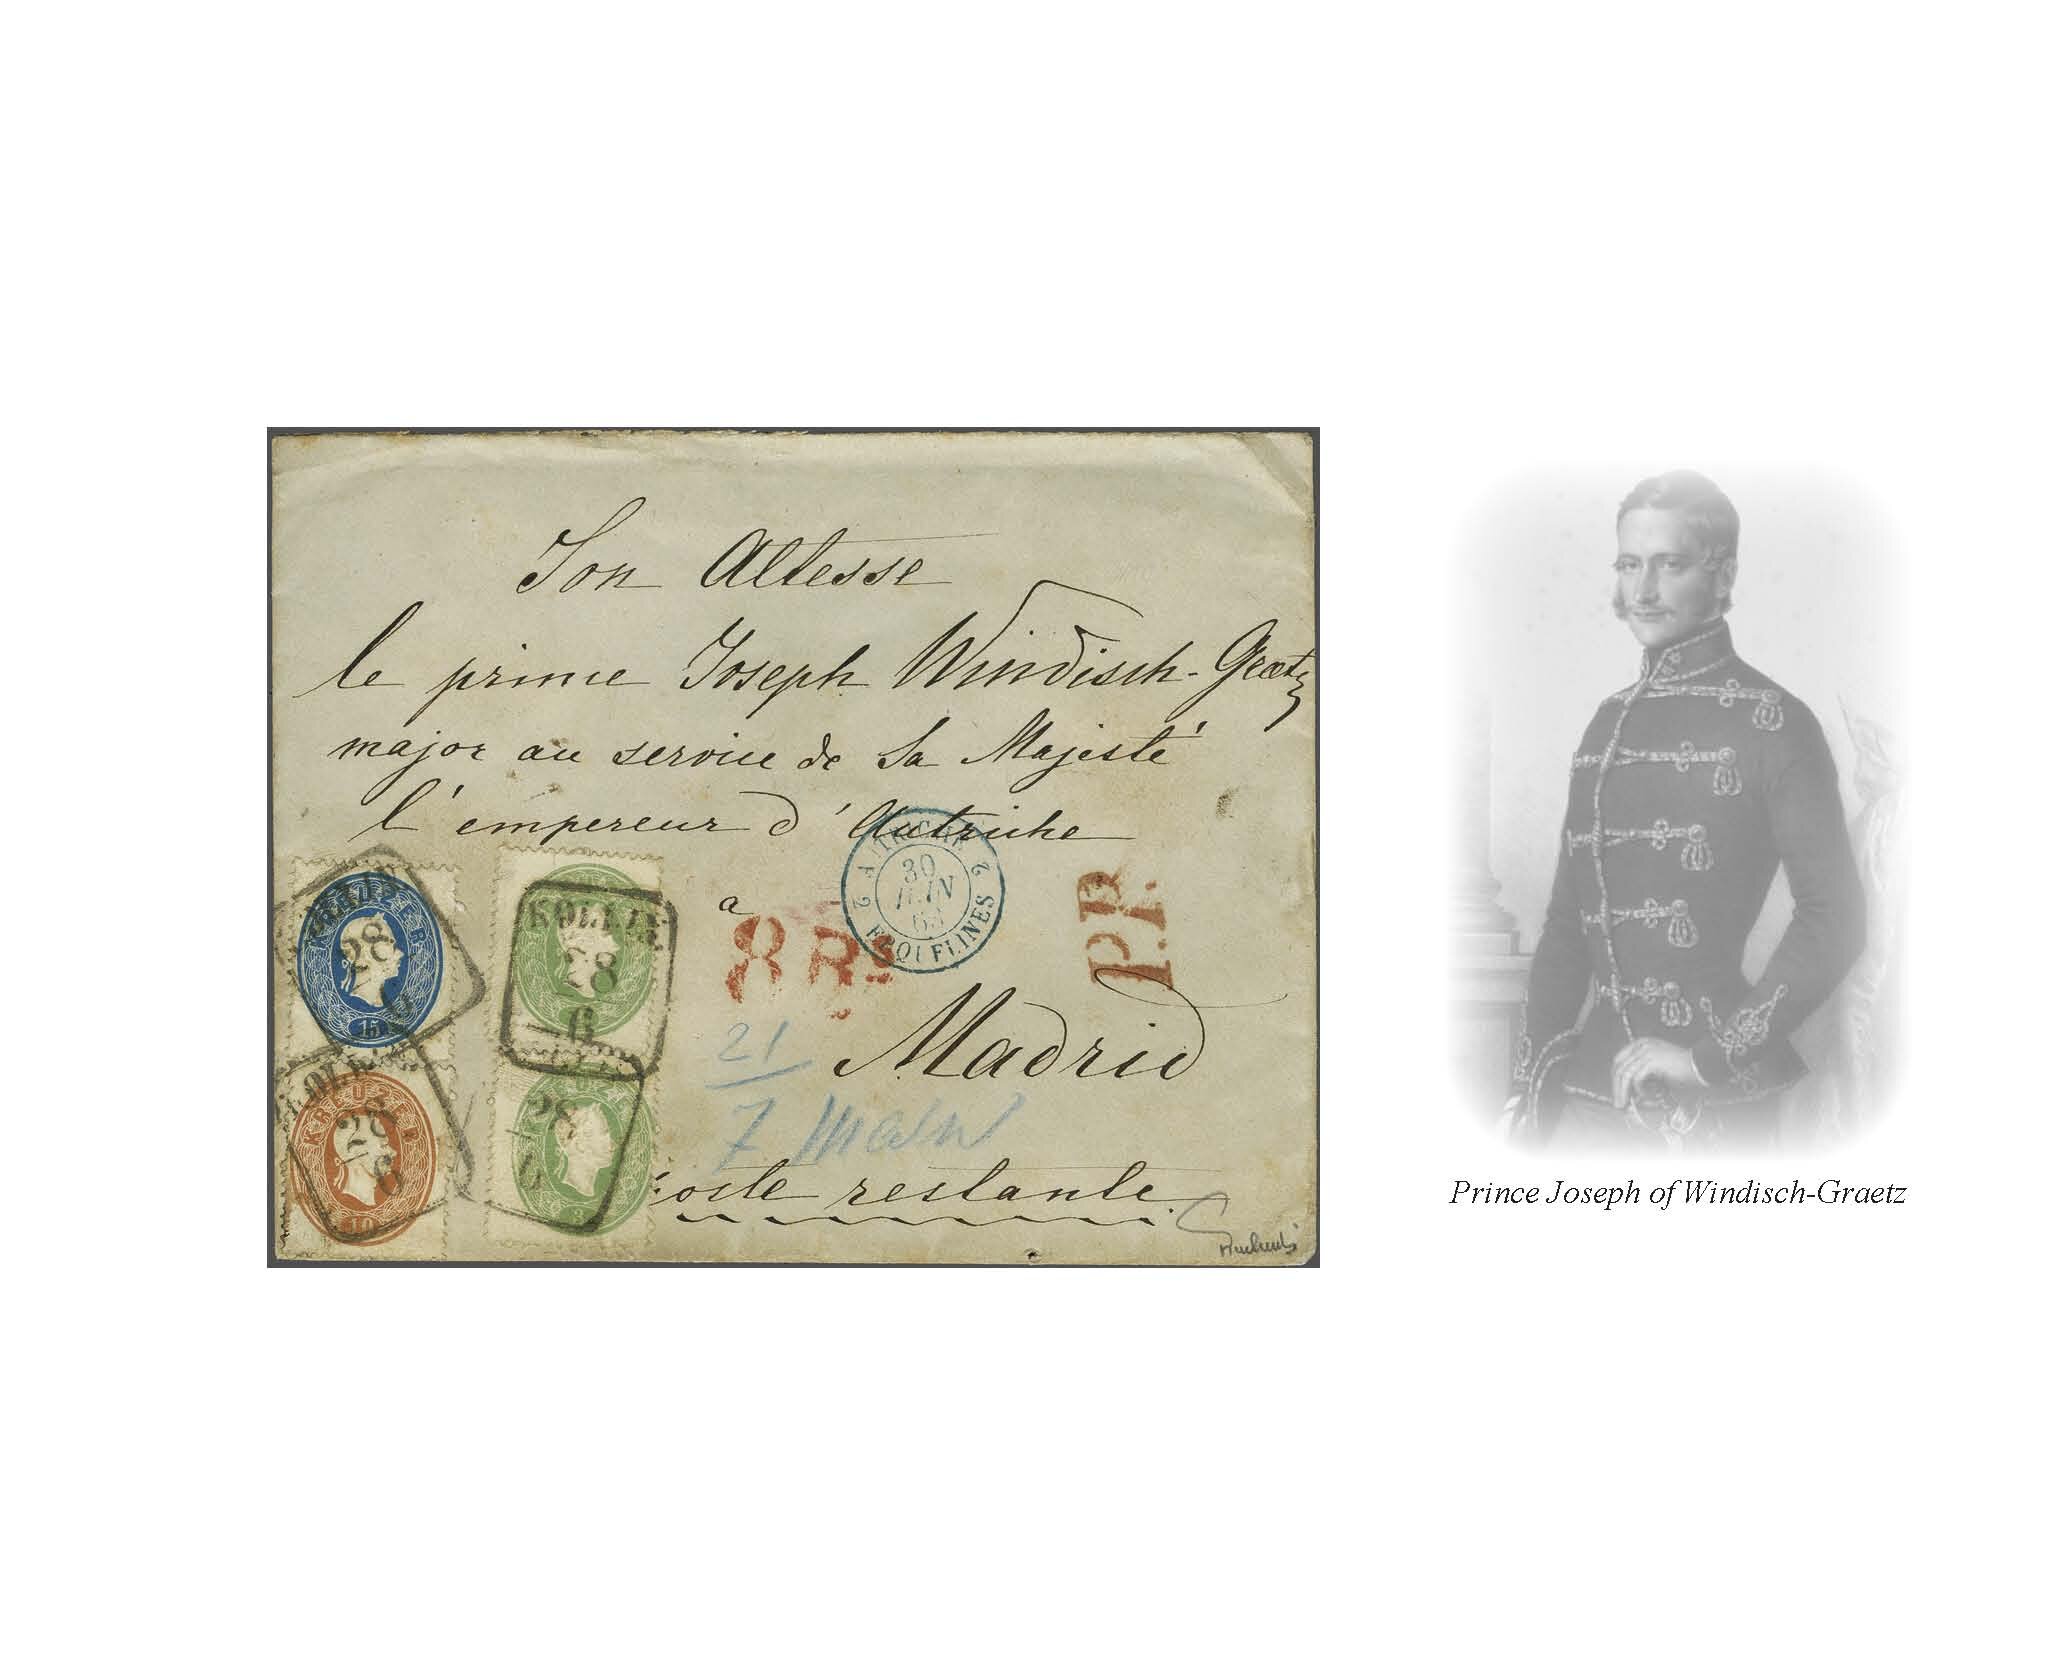 Son Altesse
le prince Joseph Windisch-Graetz
major au service de Sa Majesté
l'empereur d'Autriche
a
Madrid
poste restante
KREUZER
15
KOLLIN
28
6
KREUZER
10
KOLLIN
28
6
KOLLIN
28
6
3
28
6
8 Rs
AUTRICHE
2 2
30
JUIN
63
FEQUELINES
P.P.
21
7
Prince Joseph of Windisch-Graetz